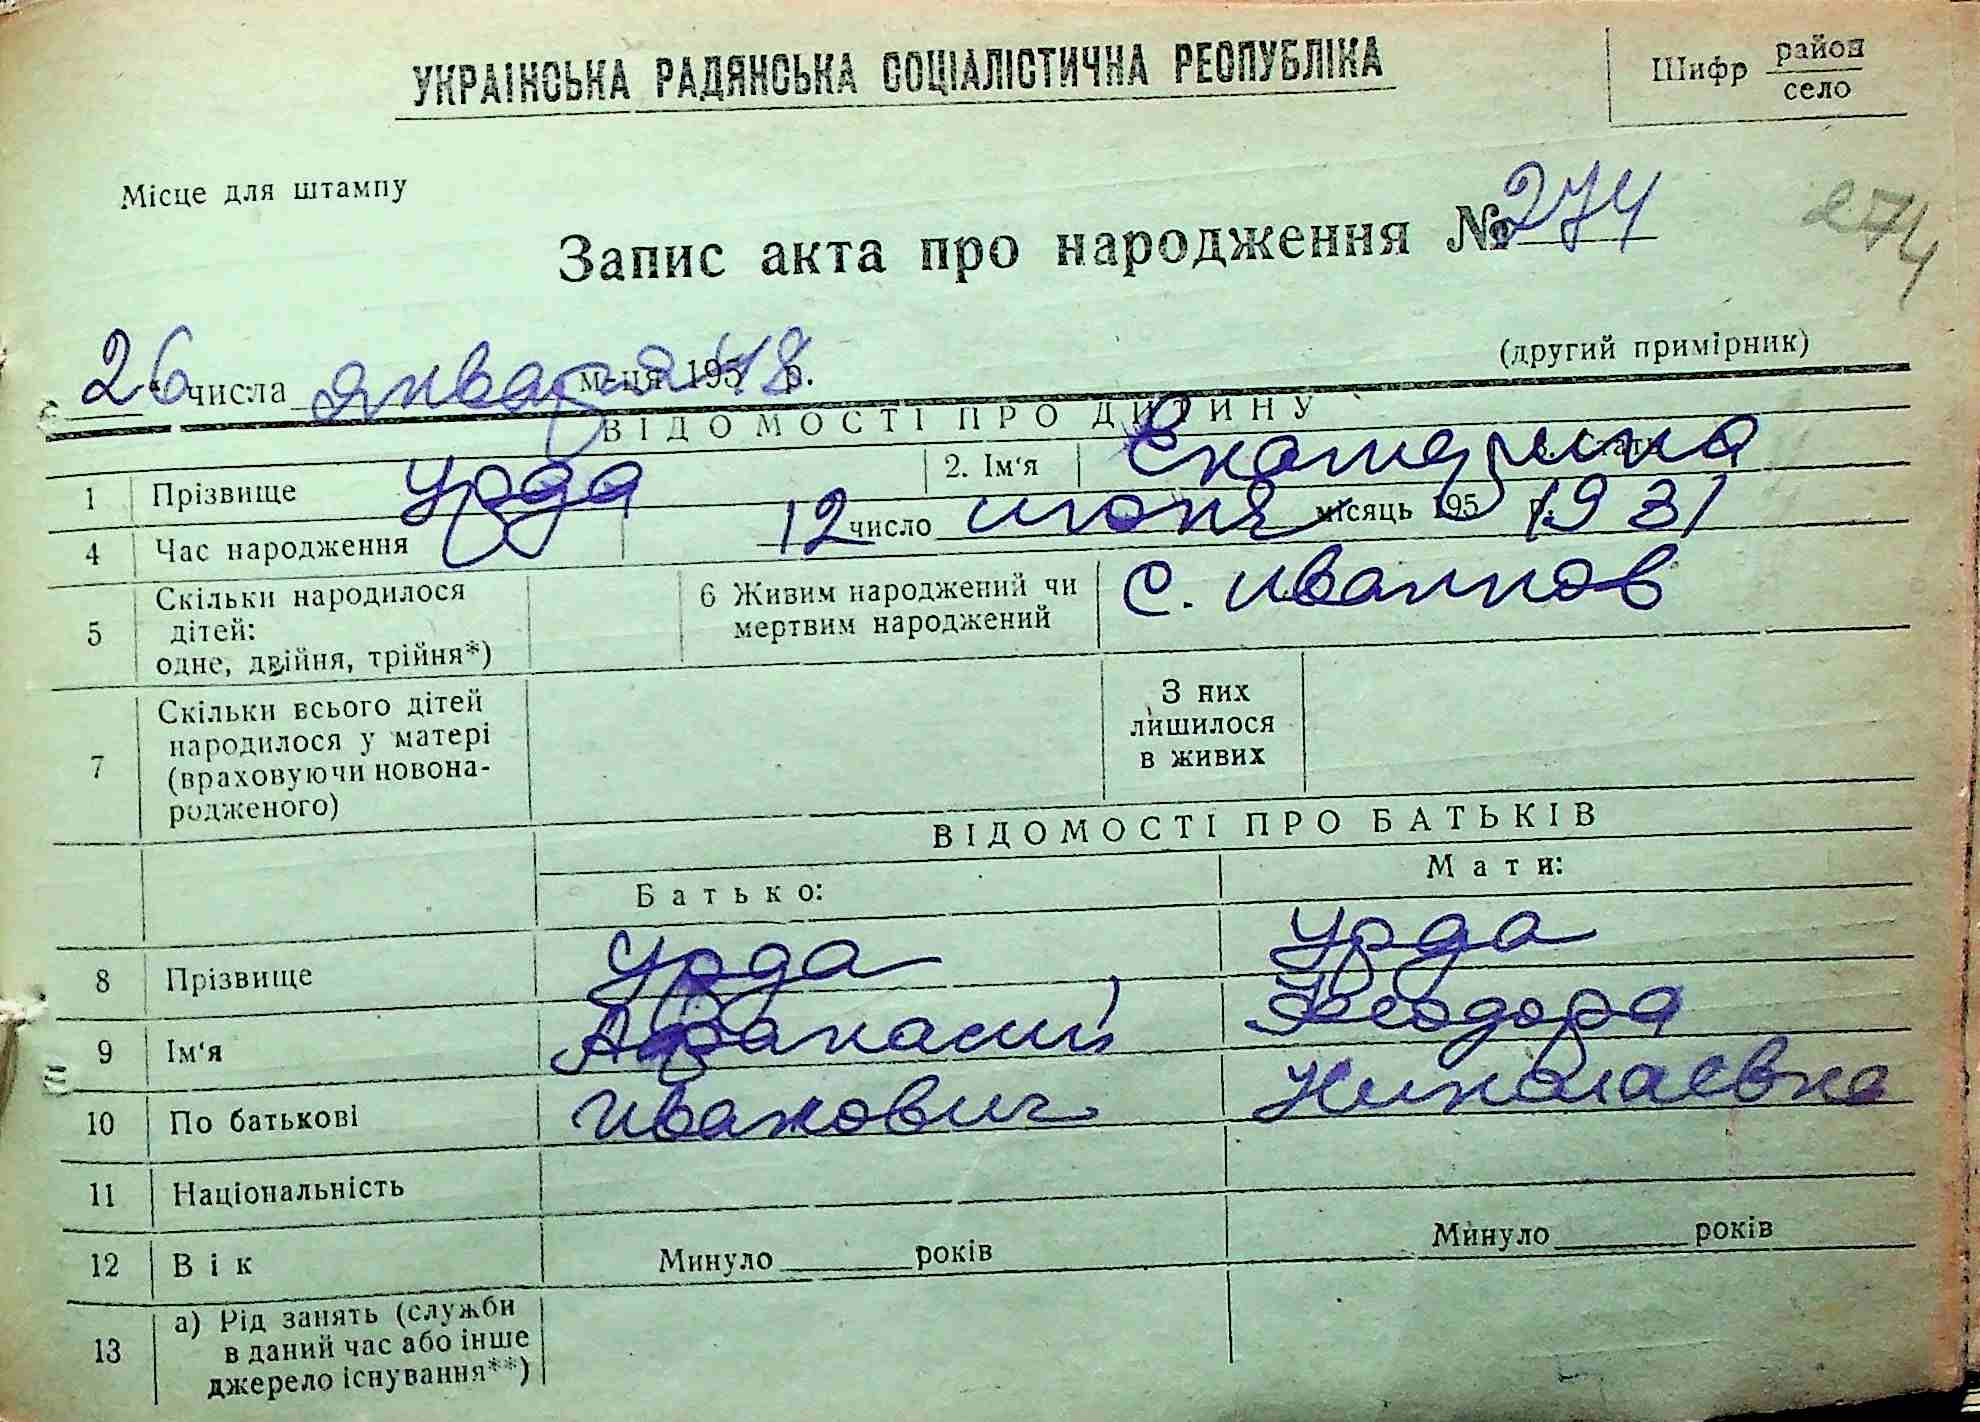 УКРАЇНСЬКА РАДЯНСЬКА СОЦІАЛІСТИЧНА РЕСПУБЛІКА
Шифр район
село
Місце для штампу
Запис акта про народження № 274
274
(другий примірник)
26 числа января м-ця 195 48 р.
ВІДОМОСТІ ПРО ДИТИНУ
1 Прізвище Урда 2. Ім'я Екатерина
4 Час народження 12 число июня місяць 195 р. 1931
5 Скільки народилося
дітей:
одне, двійня, трійня*)
6 Живим народжений чи
мертвим народжений
с. Иванков
7 Скільки всього дітей
народилося у матері
(враховуючи новона-
родженого)
З них
лишилося
в живих
ВІДОМОСТІ ПРО БАТЬКІВ
Батько: Мати:
8 Прізвище Урда Урда
9 Ім'я Афанасий Феодора
10 По батькові Иванович Николаевна
11 Національність
12 Вік Минуло років Минуло років
13 а) Рід занять (служби
в даний час або інше
джерело існування**)